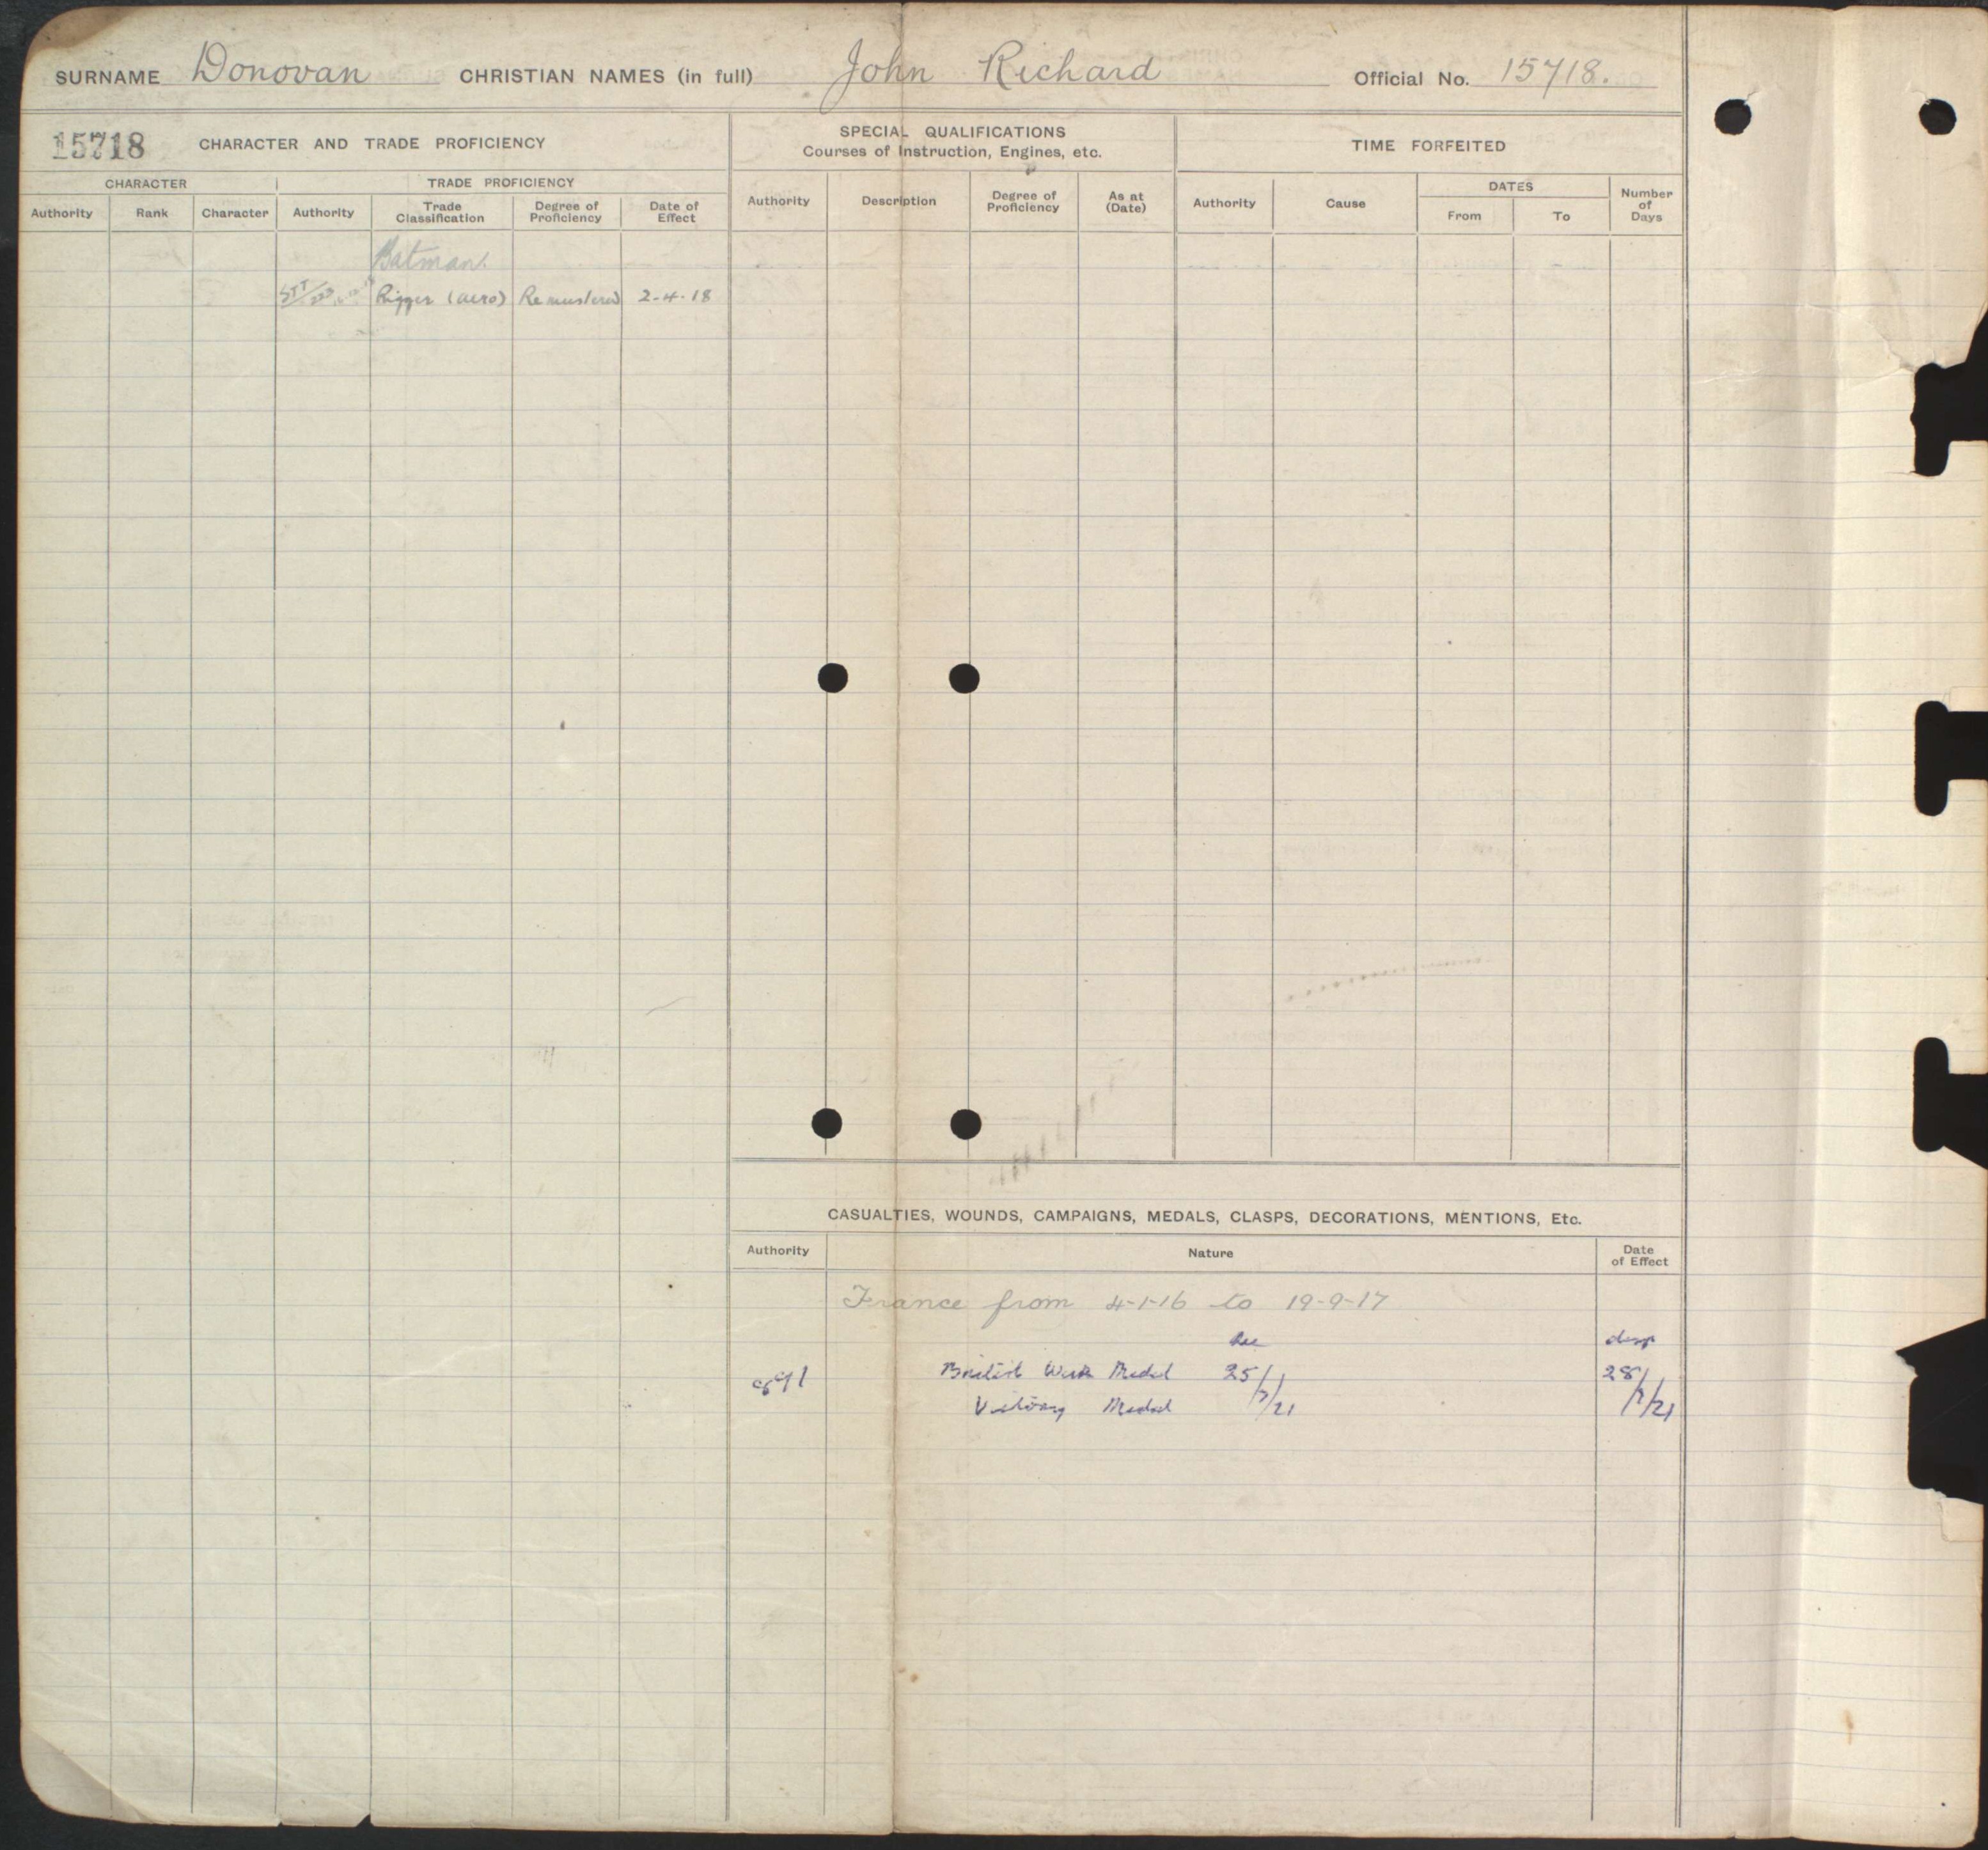 SURNAME Donovan CHRISTIAN NAMES (in full) John Richard Official No. 15718.
15718 CHARACTER AND TRADE PROFICIENCY
CHARACTER TRADE PROFICIENCY
Authority Rank Character Authority Trade Classification Degree of Proficiency Date of Effect
Batman.
STT Rigger (aero) Remustered 2-4-18
SPECIAL QUALIFICATIONS
Courses of Instruction, Engines, etc.
Authority Description Degree of Proficiency As at (Date)
TIME FORFEITED
Authority Cause DATES From To Number of Days
CASUALTIES, WOUNDS, CAMPAIGNS, MEDALS, CLASPS, DECORATIONS, MENTIONS, Etc.
Authority Nature Date of Effect
France from 4-1-16 to 19-9-17
Rec desp
British War Medal 25/ 28/
Victory Medal 7/21 7/21